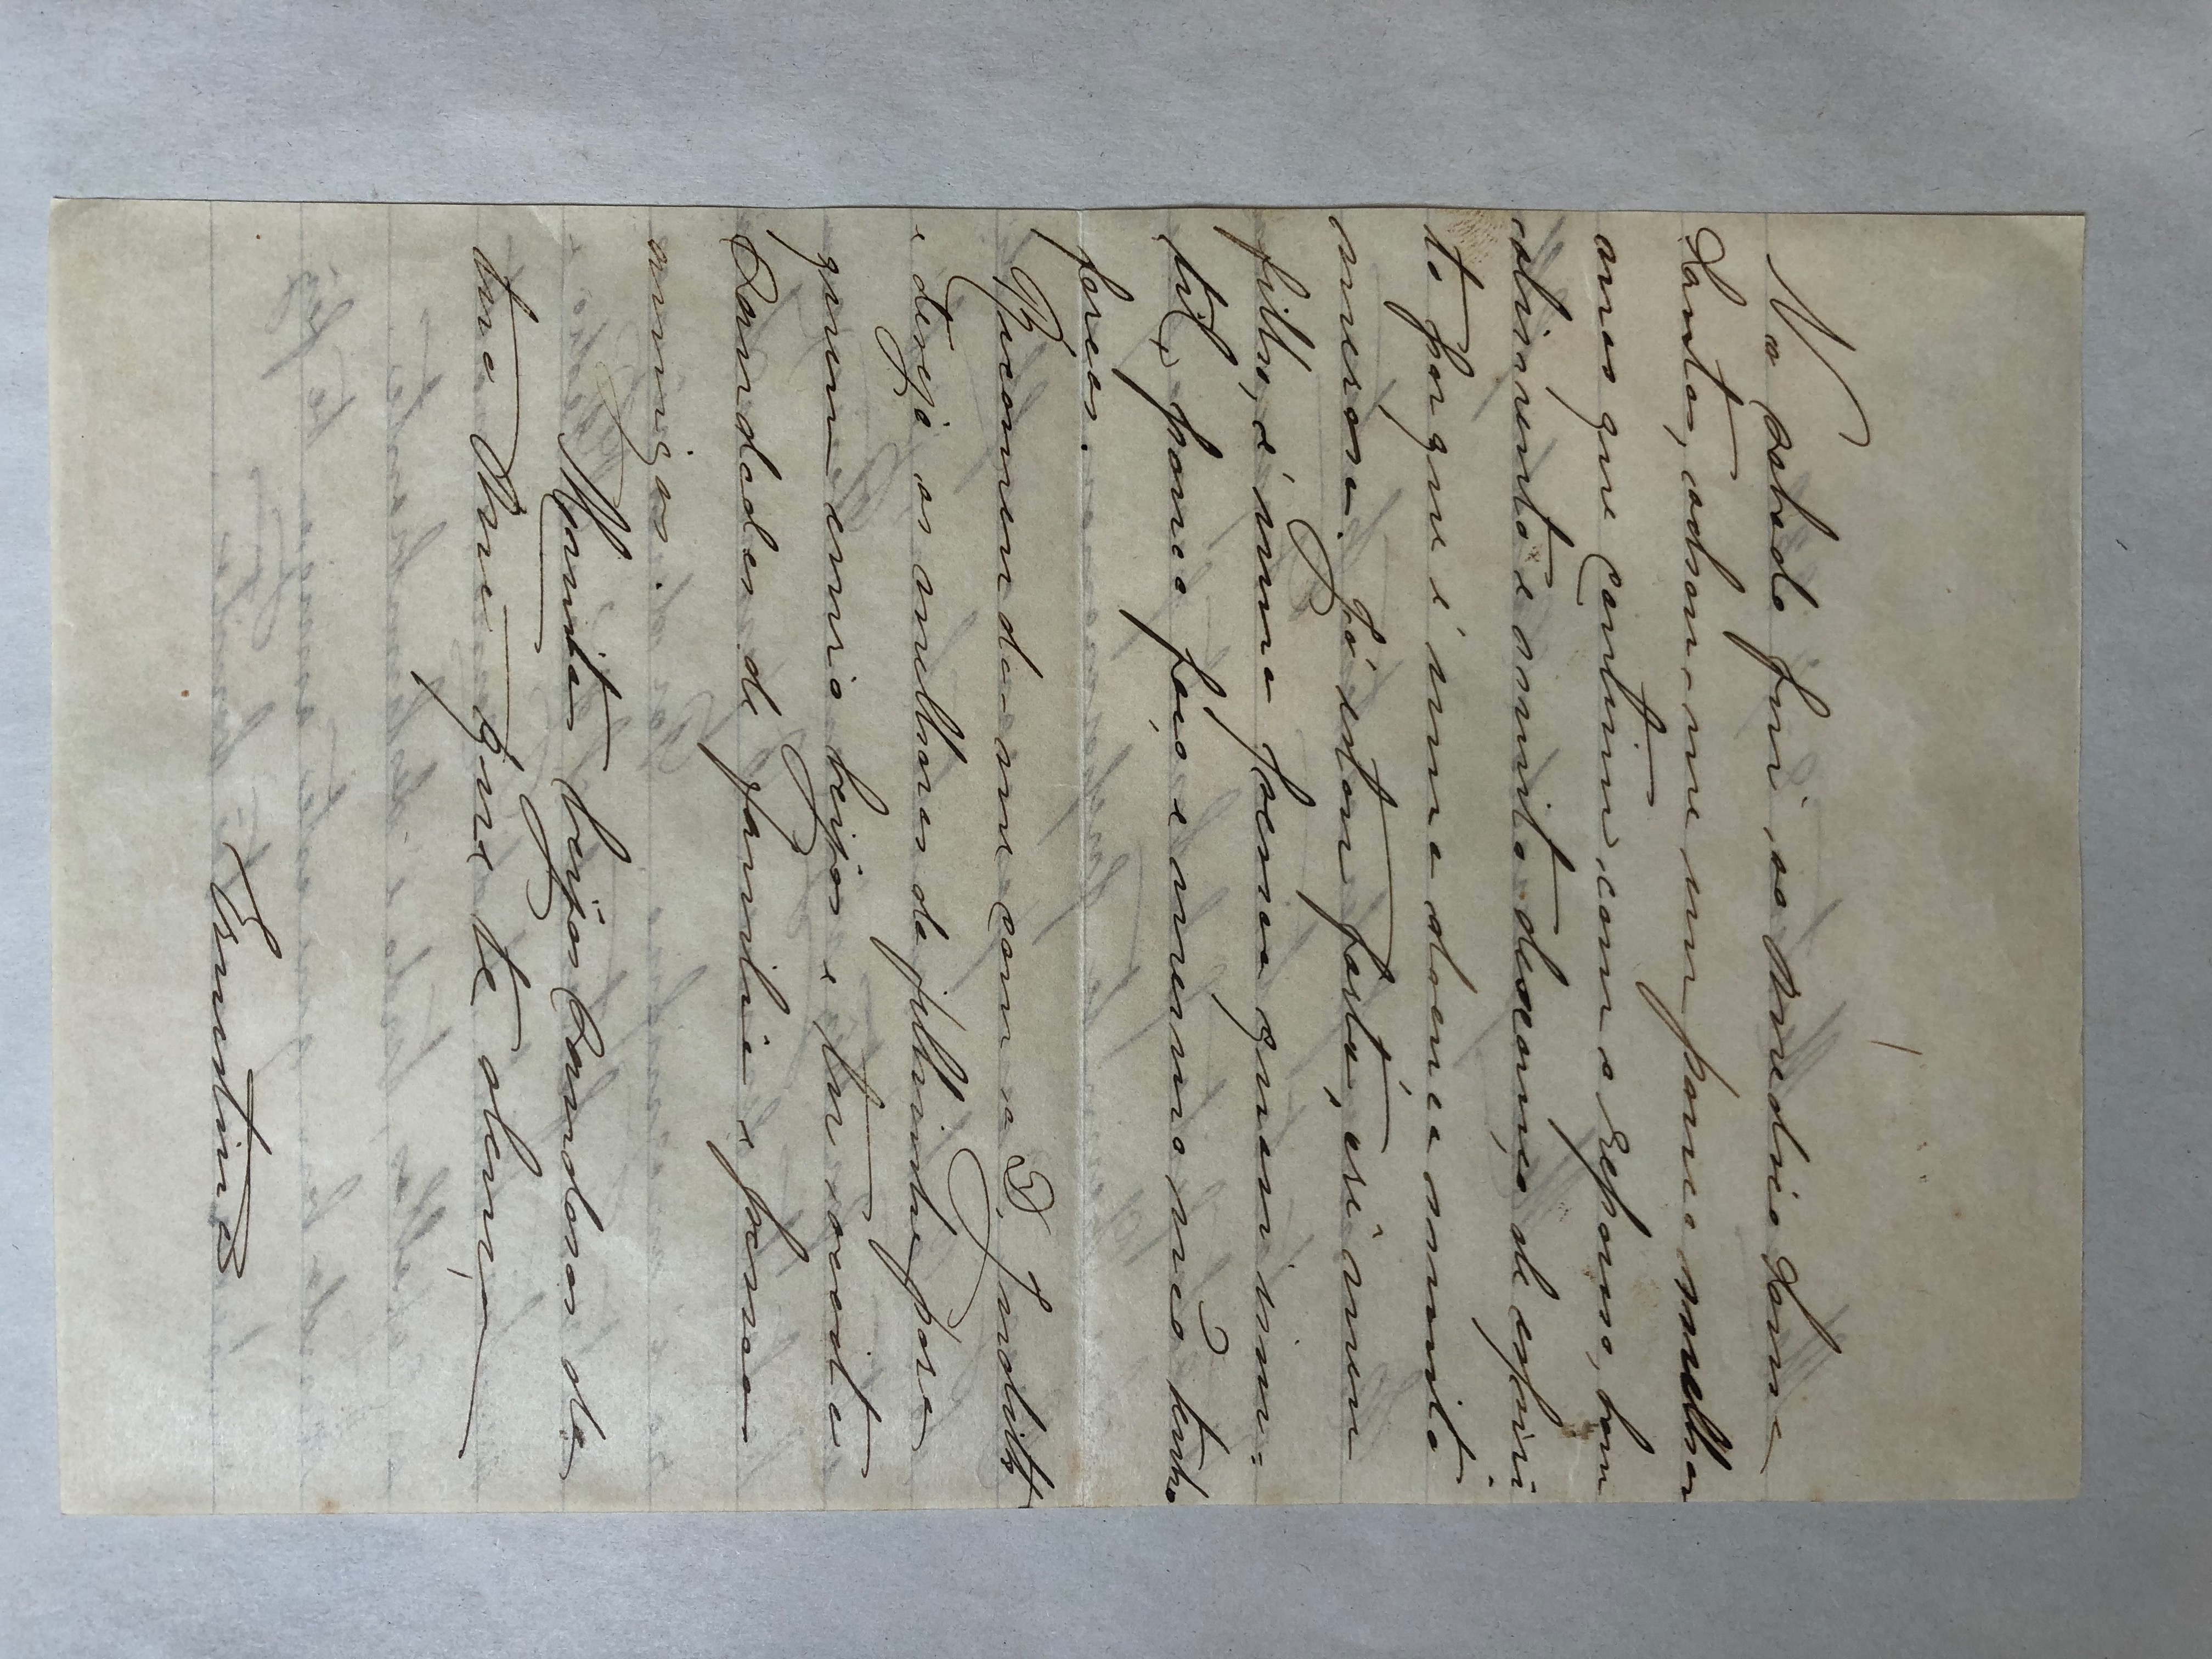 No sabado fui ao medico Sousa
Santos, achou-me um pouco melhor
mas que continue com o repouso, bom
alimento e muito descanço de espiri
to porque é uma doença muito
morosa. Já estou farta, crê meu
filho, é uma pessoa quasi inu-
til, pouco faço e mesmo não tenho
forças.
Recomenda-me com a D. Judith
e desejo as melhoras da filhinha para
quem envio beijos e tu aceita
saudades de familia e pessoas
amigas.
Muitos beijos saudosos da
tua Mãe que te abença
Ernestina